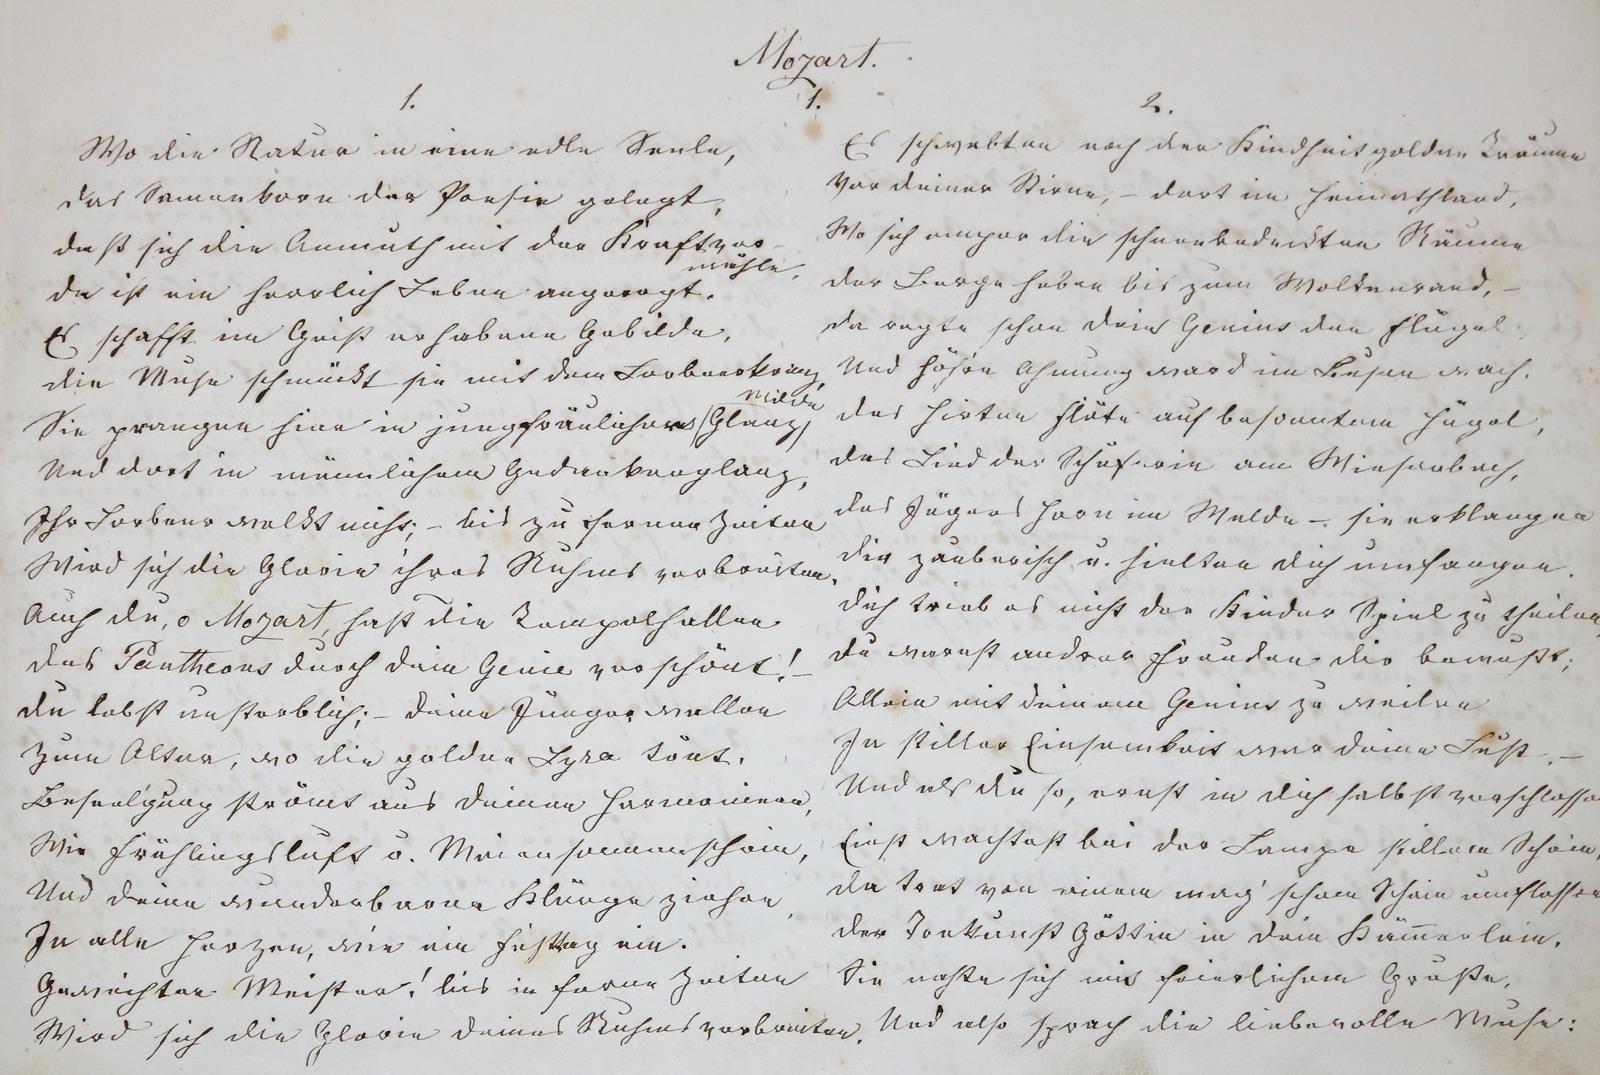 Mozart.
1.
1.
Wo die Natur in eine edle Seele,
das Samenkorn der Poesie gelegt,
daß sich die Anmuth mit der Kraft ver-
mähle,
da ist ein herrlich Leben angeregt.
Es schafft im Geist erhabene Gebilde,
die Muse schmückt sie mit dem Lorbeerkranz,
Milde
Sie prangen hier in jungfräulicher (Glanz)
Und dort in männlichem Gedankenglanz,
Ihr Lorbeer welkt nicht; – bis zu fernen Zeiten
Wird sich die Glorie ihres Ruhms verbreiten.
Auch du, o Mozart, hast die Tempelhallen
des Pantheons durch dein Genie verschönt! –
du lebst unsterblich; – deine Jünger wallen
zum Altar, wo die goldne Lyra tönt.
Beseeligung strömt aus deinen Harmonieen,
Wie Frühlingsluft u. Maiensonnenschein,
Und deine wunderbaren Klänge ziehen
In alle Herzen, wie ein Festtag ein.
Geweihter Meister! bis in ferne Zeiten
Wird sich die Glorie deines Ruhms verbreiten.
2.
Es schwebten noch der Kindheit goldne Träume
Vor deiner Stirne, – dort im Heimathland,
Wo sich empor die schneebedeckten Säume
der Berge heben bis zum Wolkenrand, –
da regte schon dein Genius den Flügel
Und höhre Ahnung ward im Busen wach.
des Hirten Flöte auf besonntem Hügel,
das Lied der Schäferin am Wiesenbach,
des Jägers Horn im Walde – sie erklangen
dir zauberisch u. hielten dich umfangen.
dich trieb es nicht der Kinder Spiel zu theilen,
du warst andrer Freuden dir bewußt;
Allein mit deinem Genius zu weilen
In stiller Einsamkeit war deine Lust. –
Und als du so, ernst in dich selbst verschlossen
Einst wachtest bei der Lampe stillem Schein,
da trat von einem mag'schem Schein umflossen
der Tonkunst Göttin in dein Kämmerlein.
Sie nahte sich mit feierlichem Gruße,
Und also sprach die liebevolle Muse: